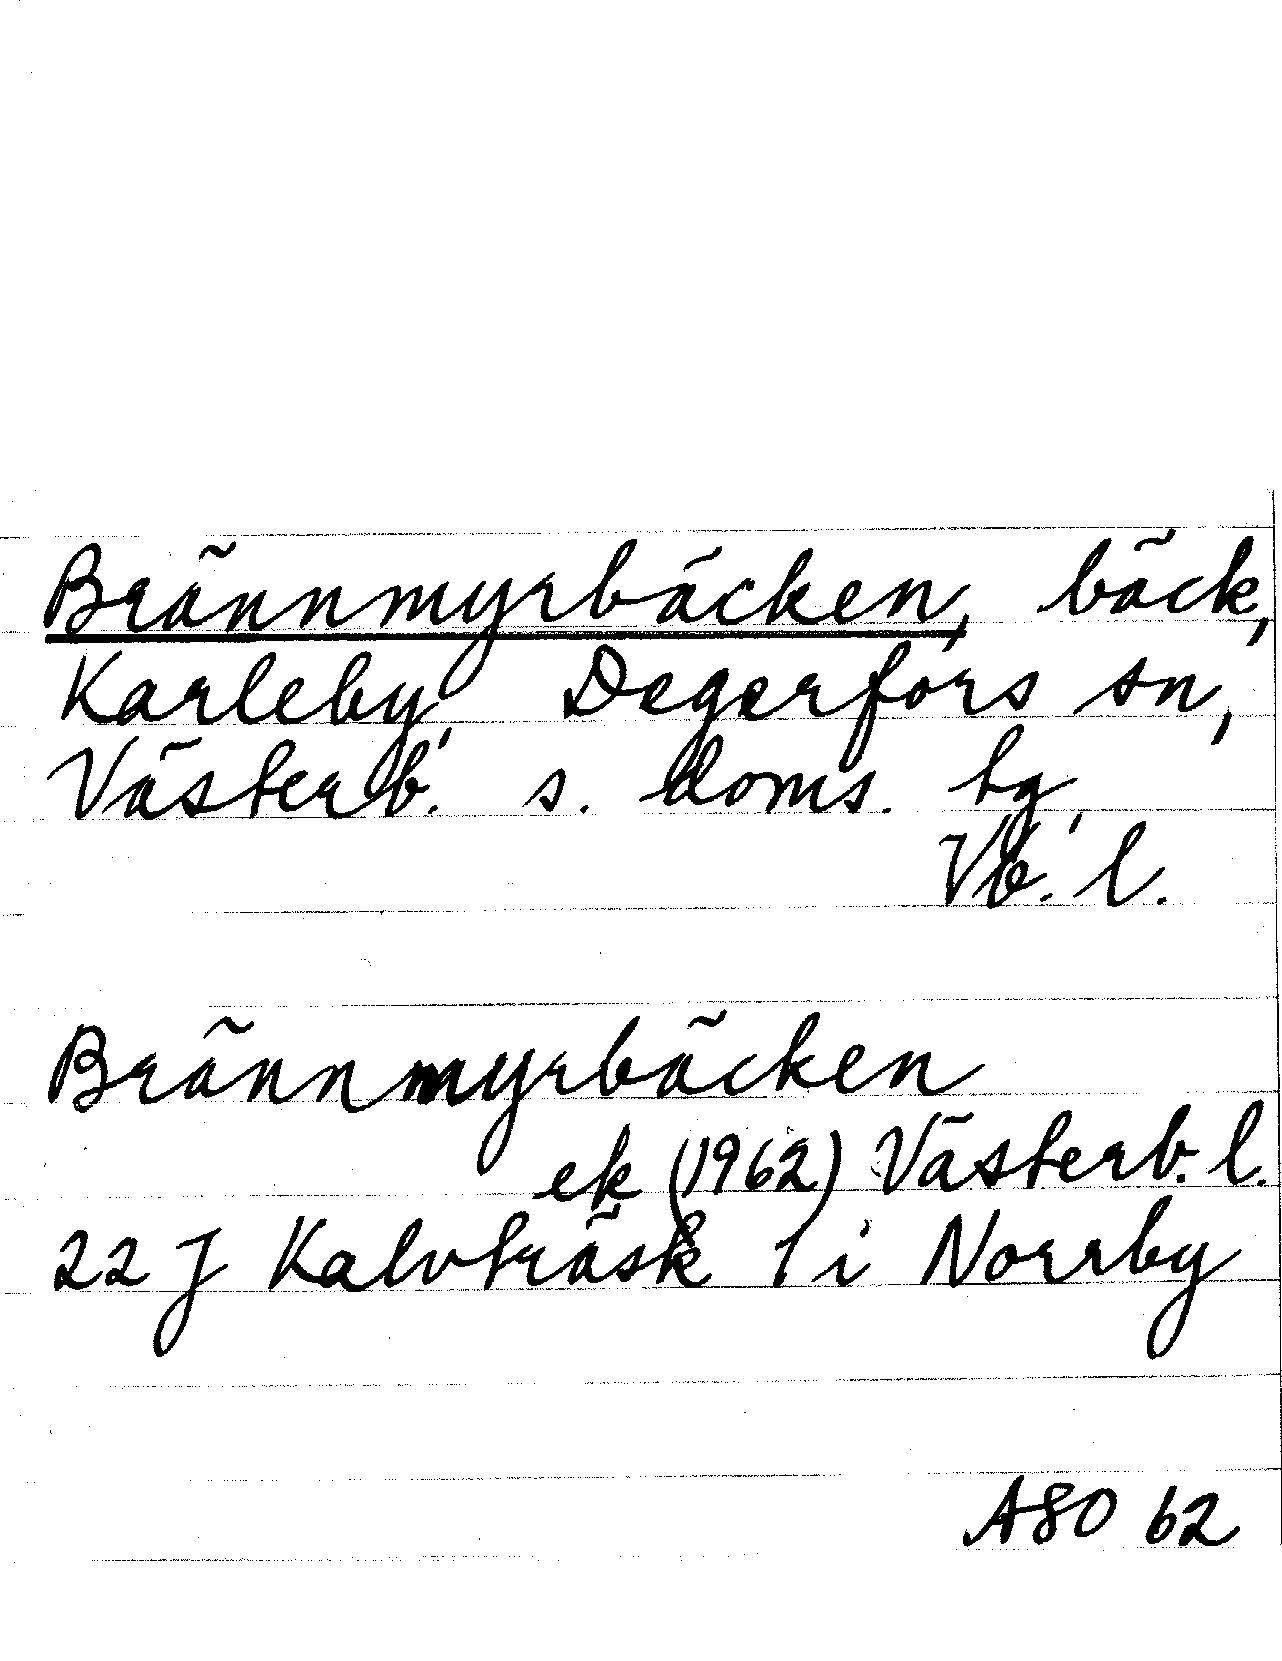 Brännmyrbäcken, bäck,
Karleby, Degerfors sn,
Västerb. s. doms. tg,
Vb. l.
Brännmyrbäcken
ek (1962) Västerb. l.
22 J Kalvträsk 1 i Norrby
ASO 62